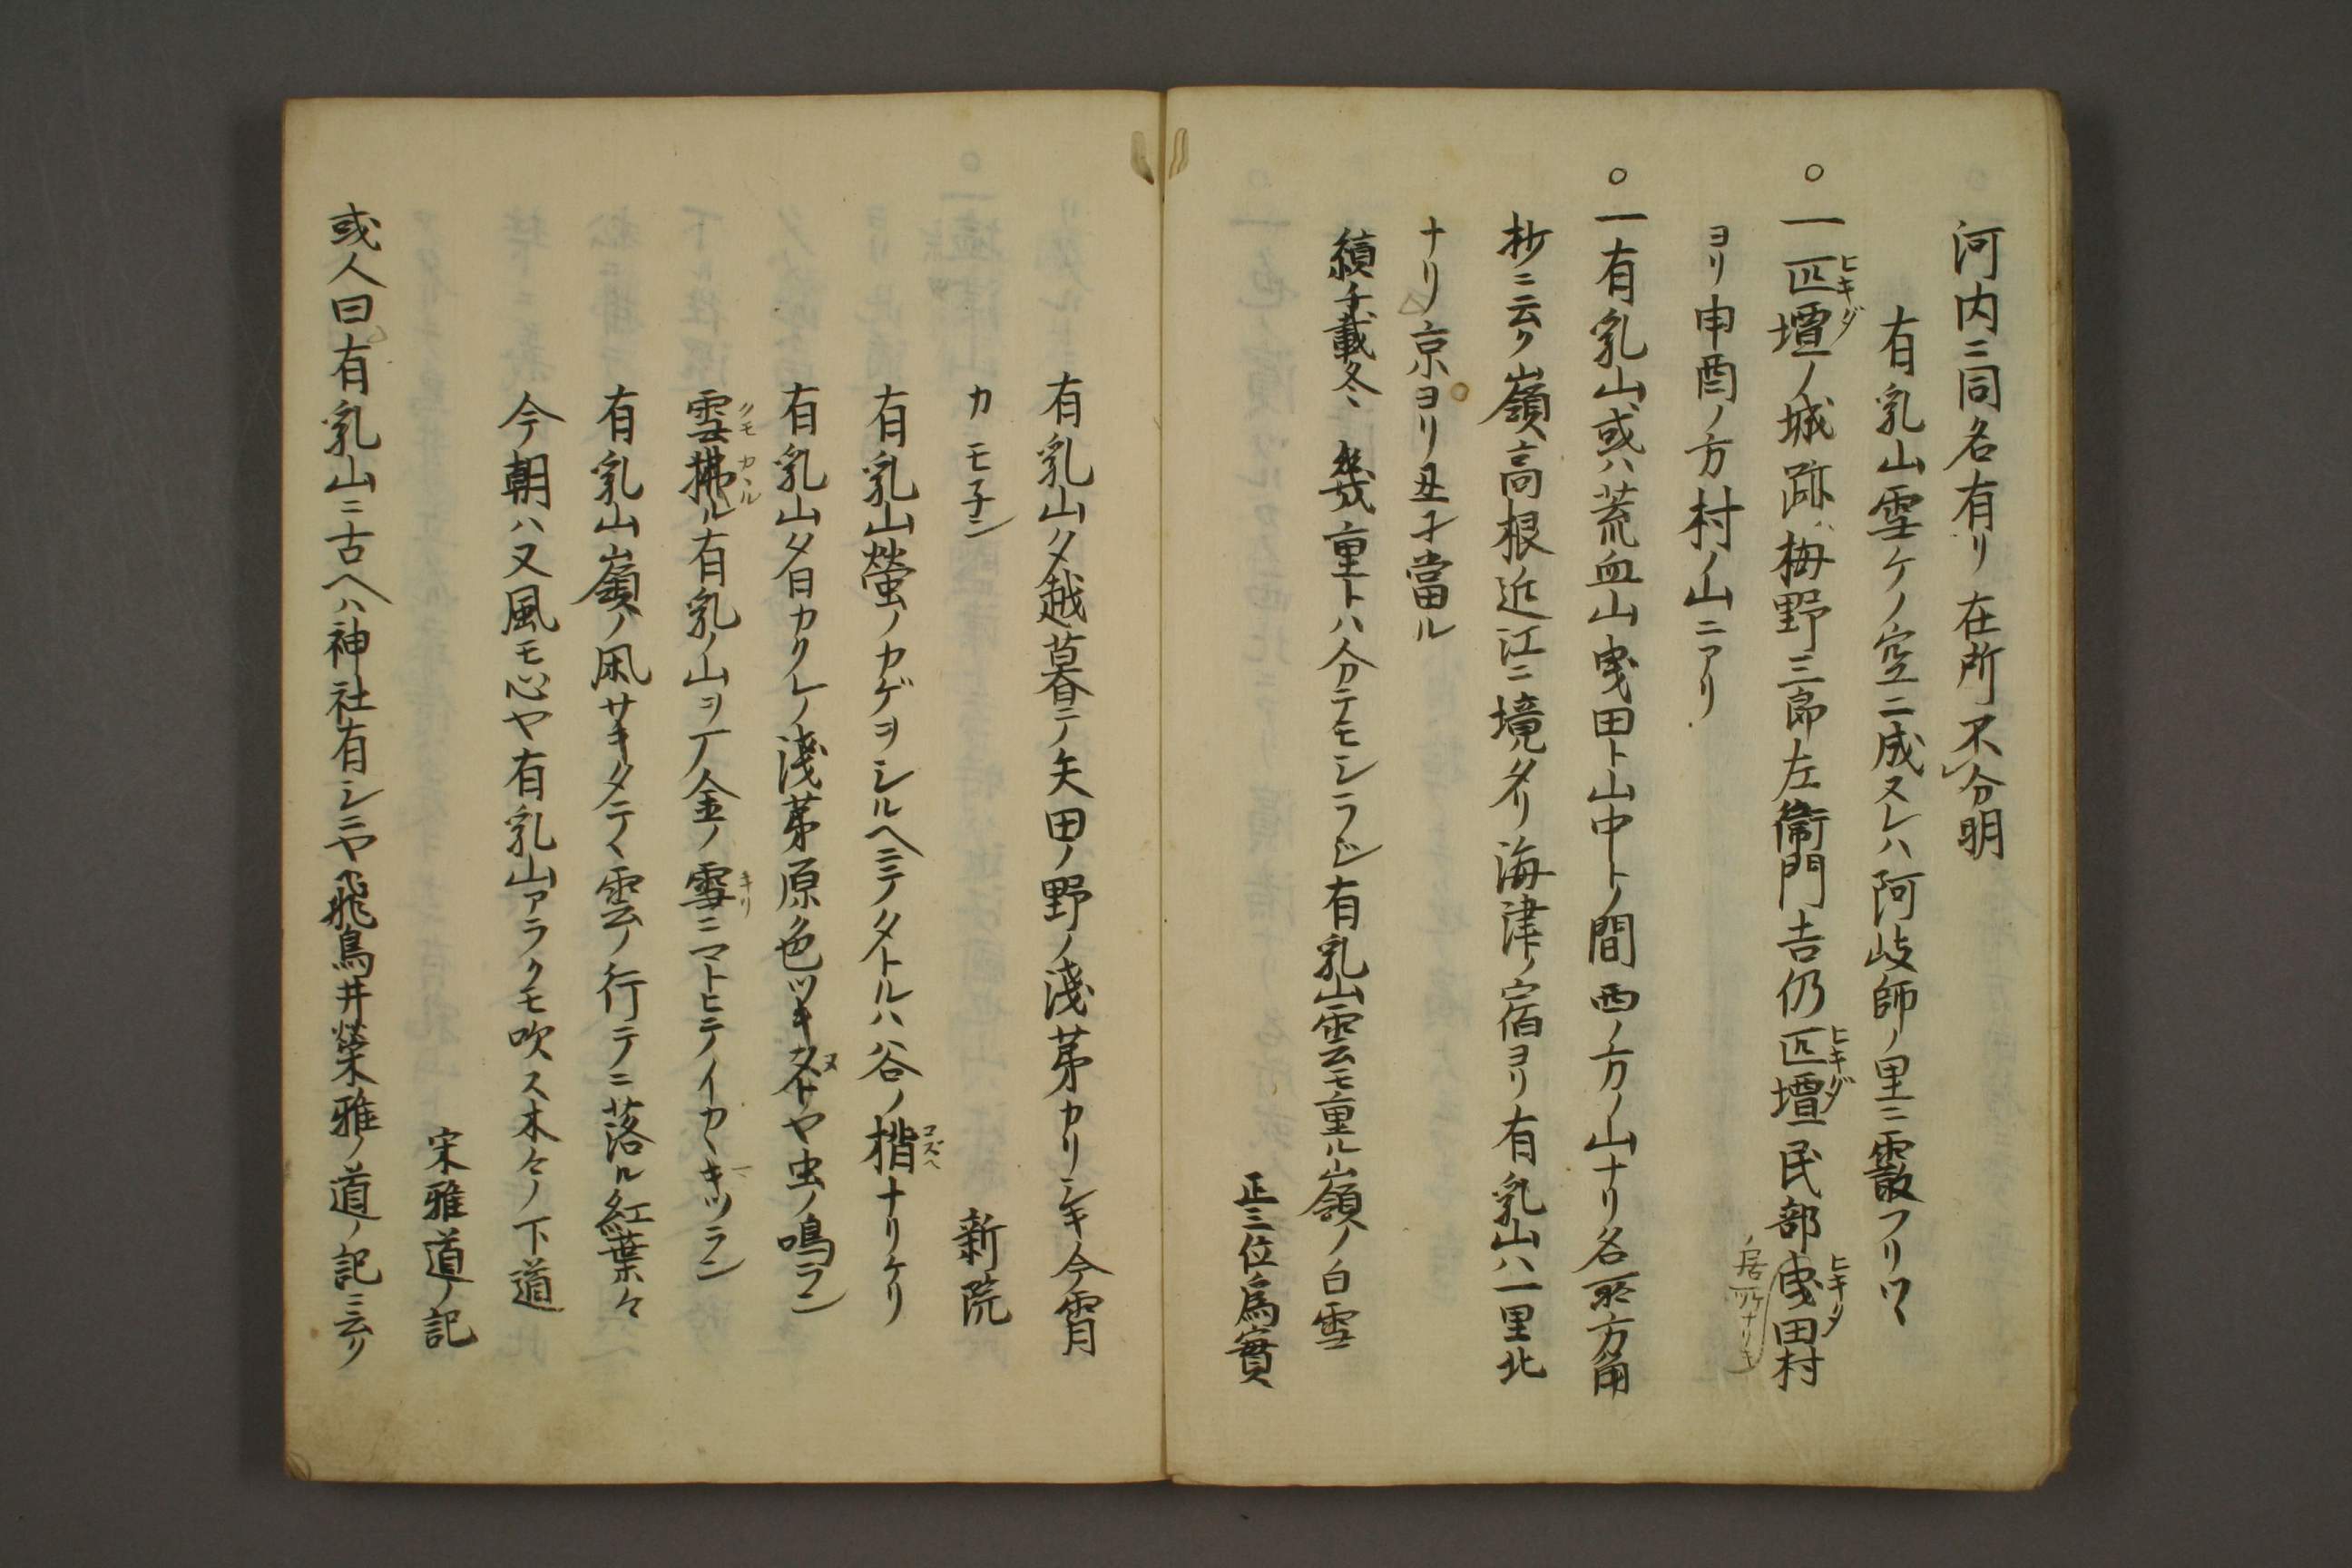 河内ニ同名有リ在所不分明
有乳山雪ケノ空ニ成ヌレハ阿岐師ノ里ニ霰フリツヽ
○一匹壇ノ城跡ハ梅野三郎左衛門吉仍匹壇民部曳田村
ヒキダ
ヒキダ
ヒキダ
ノ居所ナリキ
ヨリ申酉ノ方村ノ山ニアリ
○一有乳山或ハ荒血山曳田ト山中トノ間西ノ方ノ山ナリ名所方角
抄ニ云ク嶺高根近江ニ境タリ海津ノ宿ヨリ有乳山ハ一里北
ナリ京ヨリ丑ニ當ル
續千載冬 幾重トハ分テモシラジ有乳山雲モ重ル嶺ノ白雪
正三位爲實
有乳山夕越暮テ矢田ノ野ノ淺茅カリシキ今宵
カモ子ン
新院
有乳山螢ノカゲヲシルヘニテタトルハ谷ノ楷ナリケリ
コズヘ
有乳山夕日カクレノ淺茅原色ツキヌトヤ虫ノ鳴ラン
雲拂ル有乳ノ山ヲ丁金ノ雪ニマトヒテイカヽキツラン
クモ カヽル
キリ
有乳山嶺ノ凩サキタテヽ雲ノ行テニ落ル紅葉々
今朝ハ又風モ心ヤ有乳山アラクモ吹ス木々ノ下道
宋雅道ノ記
或人曰有乳山ニ古ヘハ神社有シニヤ飛鳥井榮雅ノ道ノ記ニ云ク